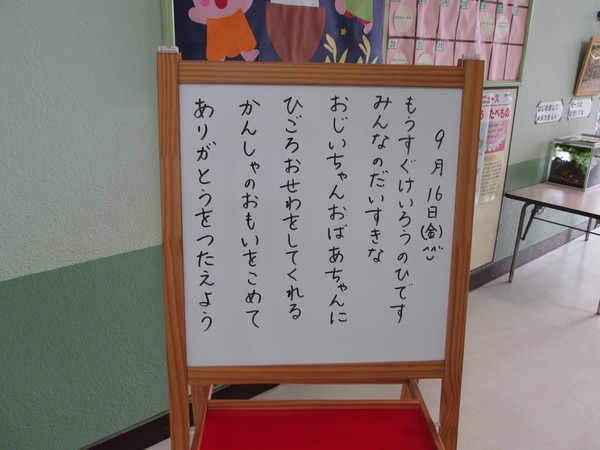 9月16日(金)^^
もうすぐけいろうのひです
みんなのだいすきな
おじいちゃんおばあちゃんに
ひごろおせわをしてくれる
かんしゃのおもいをこめて
ありがとうをつたえよう